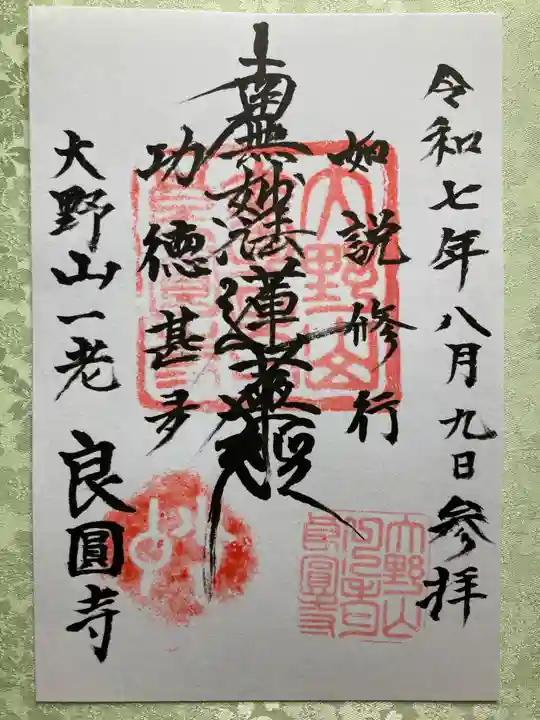 令和七年八月九日参拝
如説修行
南無妙法蓮華経
功徳甚多
大野山一老 良圓寺
大野山
大野山
良圓寺